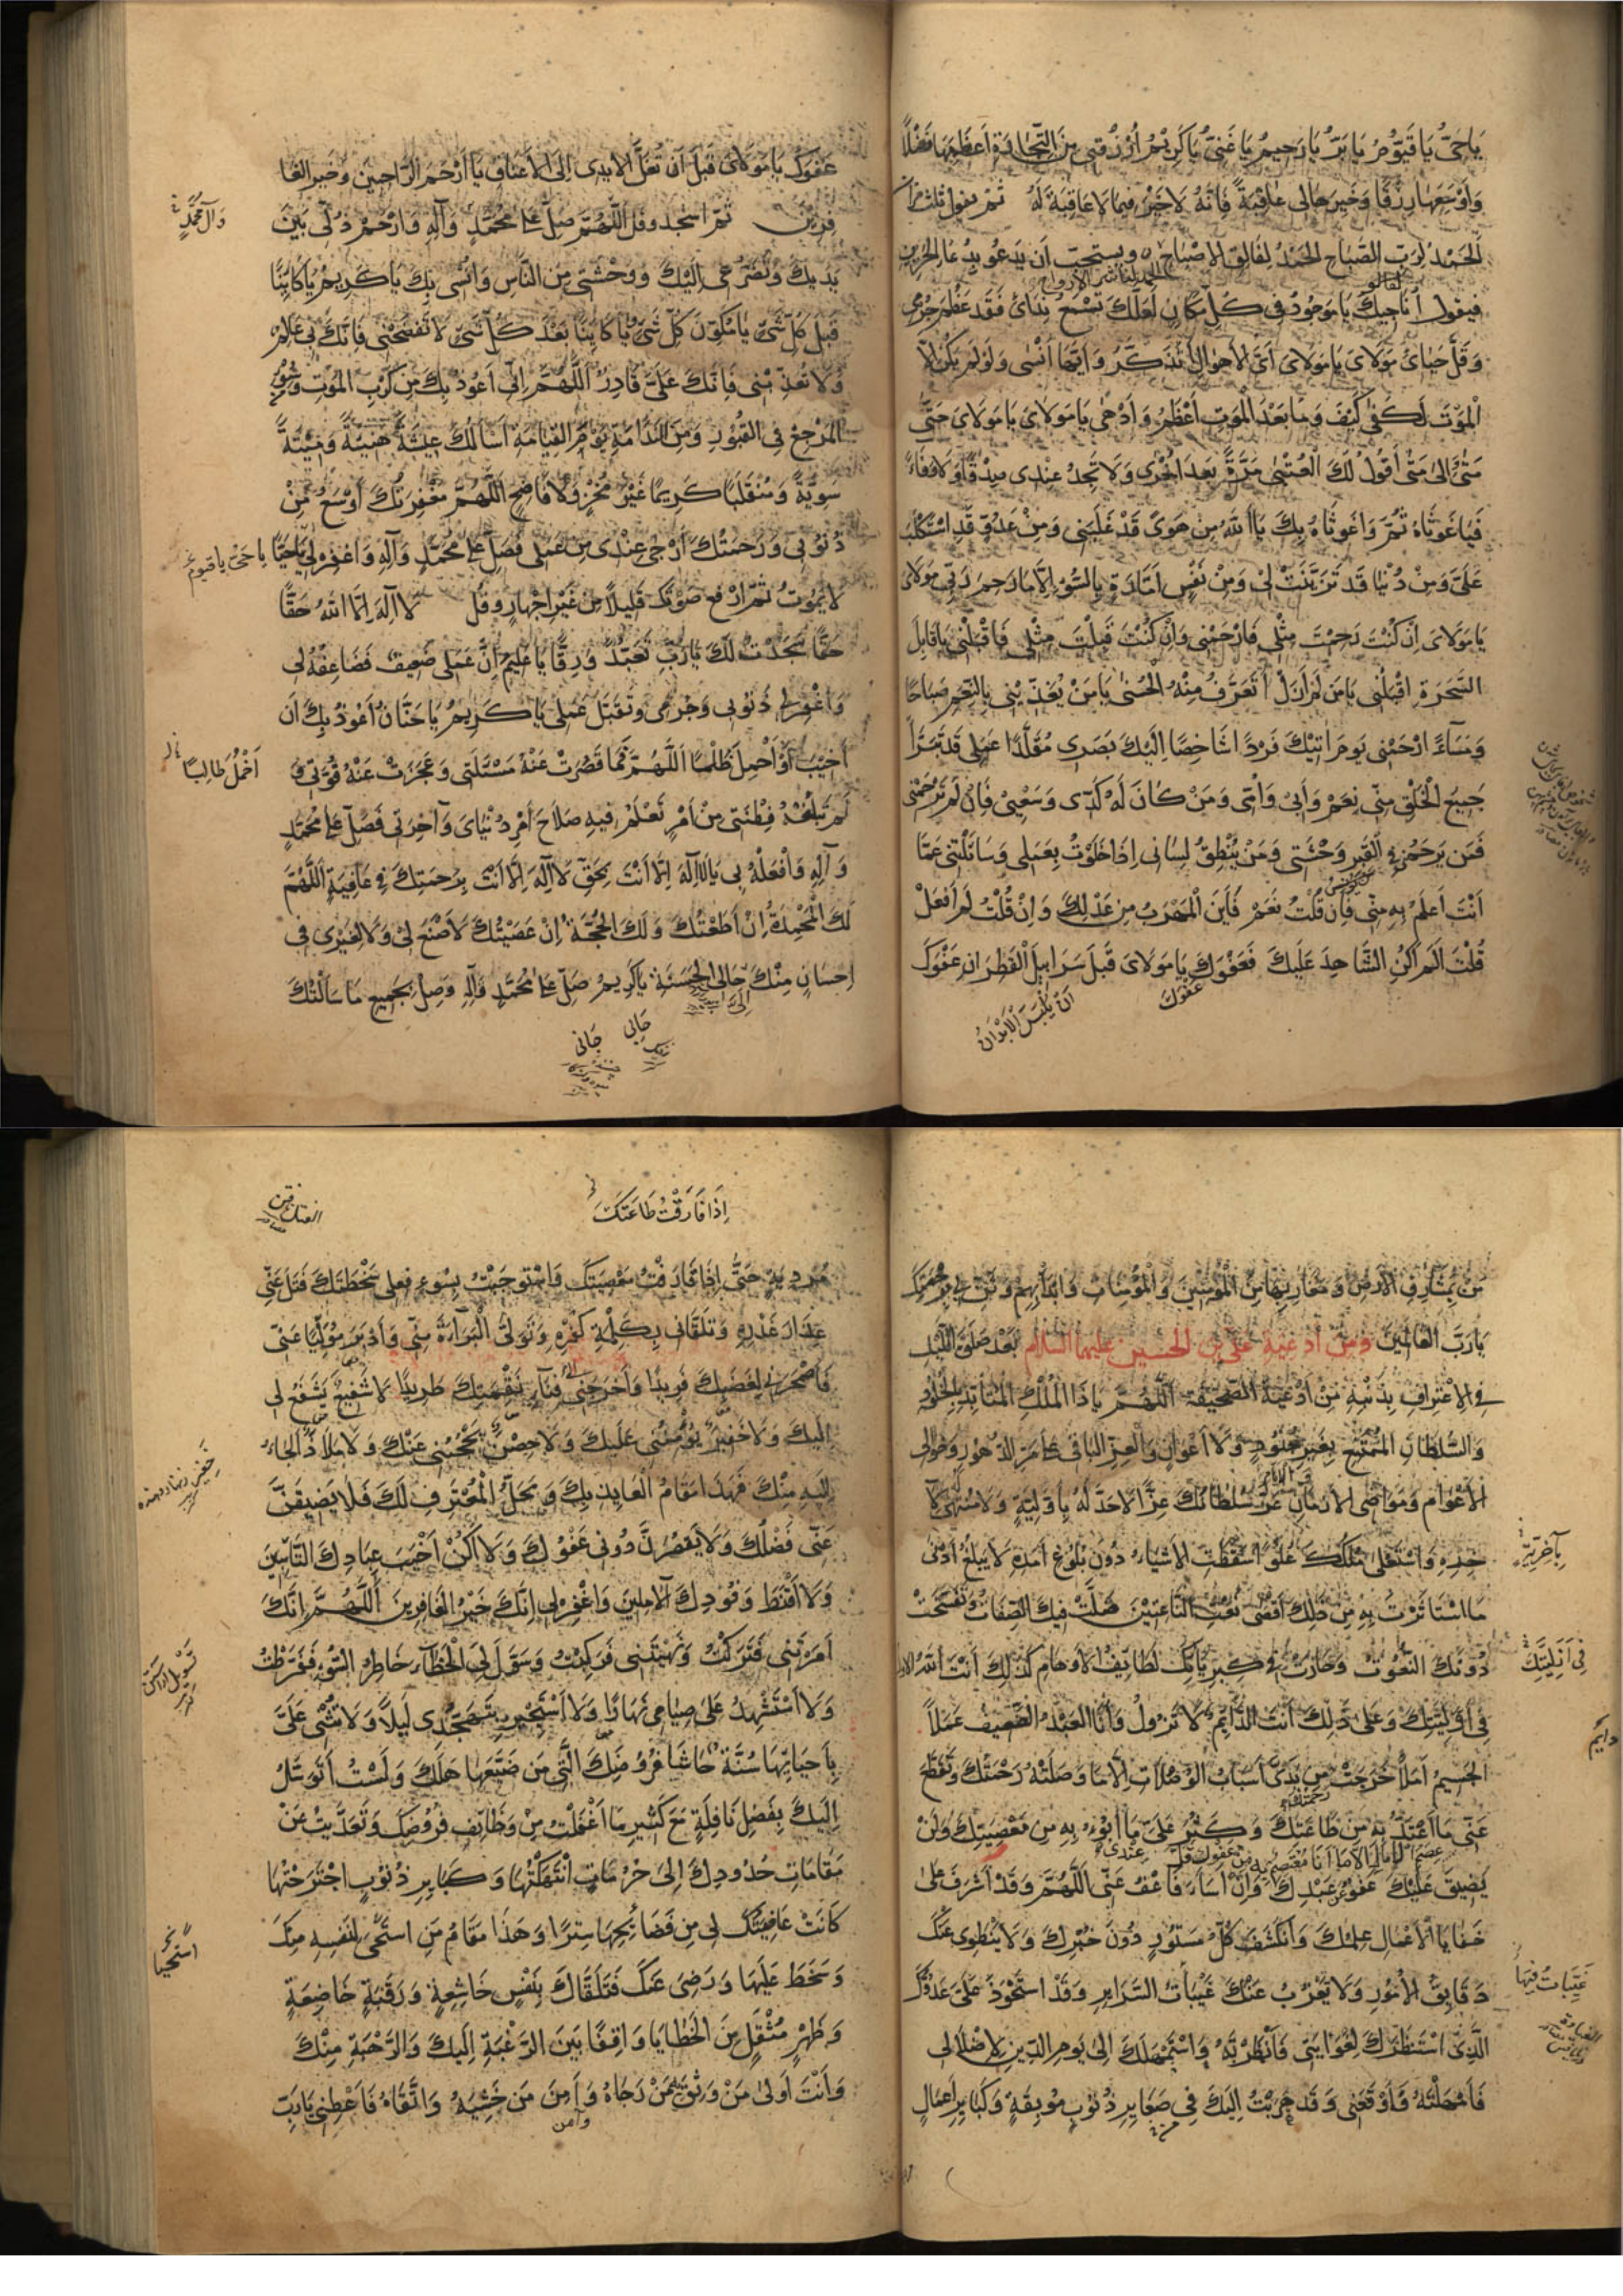 يَا حَيُّ يَا قَيُّومُ يَا بَرُّ يَا رَحِيمُ يَا غَنِيُّ يَا كَرِيمُ اُرْزُقْنِي مِنَ التِّجَارَةِ أَعْظَمَهَا فَضْلًا
وَأَوْسَعَهَا رِزْقًا وَخَيْرَهَا لِي عَاقِبَةً فَإِنَّهُ لَا خَيْرَ فِيمَا لَا عَاقِبَةَ لَهُ ثم يقول ثلث مرات
الْحَمْدُ لِرَبِّ الصَّبَاحِ الْحَمْدُ لِفَالِقِ الْإِصْبَاحِ ويستحب أن يدعو بدعاء الحزين
فيقول أُنَاجِيكَ يَا مَوْجُودُ فِي كُلِّ مَكَانٍ لَعَلَّكَ تَسْمَعُ نِدَائِي فَقَدْ عَظُمَ جُرْمِي
وَقَلَّ حَيَائِي مَوْلَايَ يَا مَوْلَايَ أَيَّ الْأَهْوَالِ أَتَذَكَّرُ وَأَيَّهَا أَنْسَى وَلَوْ لَمْ يَكُنْ إِلَّا
الْمَوْتُ لَكَفَى كَيْفَ وَمَا بَعْدَ الْمَوْتِ أَعْظَمُ وَأَدْهَى يَا مَوْلَايَ يَا مَوْلَايَ حَتَّى
مَتَى وَإِلَى مَتَى أَقُولُ لَكَ الْعُتْبَى مَرَّةً بَعْدَ أُخْرَى وَلَا تَجِدُ عِنْدِي صِدْقًا وَلَا وَفَاءً
فَيَا غَوْثَاهُ ثُمَّ وَا غَوْثَاهُ بِكَ يَا اللهُ مِنْ هَوًى قَدْ غَلَبَنِي وَمِنْ عَدُوٍّ قَدِ اسْتَكْلَبَ
عَلَيَّ وَمِنْ دُنْيَا قَدْ تَزَيَّنَتْ لِي وَمِنْ نَفْسٍ أَمَّارَةٍ بِالسُّوءِ إِلَّا مَا رَحِمَ رَبِّي مَوْلَايَ
يَا مَوْلَايَ إِنْ كُنْتَ رَحِمْتَ مِثْلِي فَارْحَمْنِي وَإِنْ كُنْتَ قَبِلْتَ مِثْلِي فَاقْبَلْنِي يَا قَابِلَ
السَّحَرَةِ اقْبَلْنِي يَا مَنْ لَمْ أَزَلْ أَتَعَرَّفُ مِنْهُ الْحُسْنَى يَا مَنْ يُغَذِّينِي بِالنِّعَمِ صَبَاحًا
وَمَسَاءً ارْحَمْنِي يَوْمَ آتِيكَ فَرْدًا شَاخِصًا إِلَيْكَ بَصَرِي مُقَلَّدًا عَمَلِي قَدْ تَبَرَّأَ
جَمِيعُ الْخَلْقِ مِنِّي نَعَمْ وَأَبِي وَأُمِّي وَمَنْ كَانَ لَهُ كَدِّي وَسَعْيِي فَإِنْ لَمْ تَرْحَمْنِي
فَمَنْ يَرْحَمُنِي فِي الْقَبْرِ وَحْشَتِي وَمَنْ يُنْطِقُ لِسَانِي إِذَا خَلَوْتُ بِعَمَلِي وَسَائَلْتَنِي عَمَّا
أَنْتَ أَعْلَمُ بِهِ مِنِّي فَإِنْ قُلْتُ نَعَمْ فَأَيْنَ الْمَهْرَبُ مِنْ عَدْلِكَ وَإِنْ قُلْتُ لَمْ أَفْعَلْ
قُلْتَ أَلَمْ أَكُنِ الشَّاهِدَ عَلَيْكَ فَعَفْوَكَ يَا مَوْلَايَ قَبْلَ سَرَابِيلِ الْقَطِرَانِ عَفْوَكَ
عَفْوَكَ
أَنْ يُلْبَسَ الْأَبْدَانُ
عَفْوَكَ يَا مَوْلَايَ قَبْلَ أَنْ تُغَلَّ الْأَيْدِي إِلَى الْأَعْنَاقِ يَا أَرْحَمَ الرَّاحِمِينَ وَخَيْرَ الْغَا
فِرِينَ ثم اسجد وقل اللَّهُمَّ صَلِّ عَلَى مُحَمَّدٍ وَآلِهِ وَارْحَمْ ذُلِّي بَيْنَ
وَآلِ مُحَمَّدٍ
يَدَيْكَ وَتَضَرُّعِي إِلَيْكَ وَوَحْشَتِي مِنَ النَّاسِ وَأُنْسِي بِكَ يَا كَرِيمُ يَا كَائِنًا
قَبْلَ كُلِّ شَيْءٍ يَا مُكَوِّنَ كُلِّ شَيْءٍ يَا كَائِنًا بَعْدَ كُلِّ شَيْءٍ لَا تَفْضَحْنِي فَإِنَّكَ بِي عَالِمٌ
وَلَا تُعَذِّبْنِي فَإِنَّكَ عَلَيَّ قَادِرٌ اللَّهُمَّ إِنِّي أَعُوذُ بِكَ مِنْ كَرْبِ الْمَوْتِ وَسُوءِ
الْمَرْجِعِ فِي الْقُبُورِ وَمِنَ النَّدَامَةِ يَوْمَ الْقِيَامَةِ أَسْأَلُكَ عِيشَةً هَنِيئَةً وَمِيتَةً
سَوِيَّةً وَمُنْقَلَبًا كَرِيمًا غَيْرَ مُخْزٍ وَلَا فَاضِحٍ اللَّهُمَّ مَغْفِرَتُكَ أَوْسَعُ مِنْ
ذُنُوبِي وَرَحْمَتُكَ أَرْجَى عِنْدِي مِنْ عَمَلِي فَصَلِّ عَلَى مُحَمَّدٍ وَآلِهِ وَاغْفِرْ لِي يَا حَيًّا
يا حَيُّ يا قيوم
لَا يَمُوتُ ثم ارفع صوتك قليلاً من غير إجهار وقل لَا إِلَهَ إِلَّا اللهُ حَقًّا
حَقًّا سَجَدْتُ لَكَ يَا رَبِّ تَعَبُّدًا وَرِقًّا يَا عَظِيمُ إِنَّ عَمَلِي ضَعِيفٌ فَضَاعِفْهُ لِي
وَاغْفِرْ لِي ذُنُوبِي وَجُرْمِي وَتَقَبَّلْ عَمَلِي يَا كَرِيمُ يَا حَنَّانُ أَعُوذُ بِكَ أَنْ
أَخِيبَ أَوْ أَحْمِلَ ظُلْمًا اللَّهُمَّ مَا قَصُرَتْ عَنْهُ مَسْئَلَتِي وَعَجَزَتْ عَنْهُ قُوَّتِي وَ
لَمْ تَبْلُغْهُ فِطْنَتِي مِنْ أَمْرٍ تَعْلَمُ فِيهِ صَلَاحَ أَمْرِ دُنْيَايَ وَآخِرَتِي فَصَلِّ عَلَى مُحَمَّدٍ
وَآلِهِ وَافْعَلْهُ بِي يَا لَا إِلَهَ إِلَّا أَنْتَ بِحَقِّ لَا إِلَهَ إِلَّا أَنْتَ بِرَحْمَتِكَ فِي عَافِيَةٍ اللَّهُمَّ
لَكَ الْمَحْمِدَةُ إِنْ أَطَعْتُكَ وَلَكَ الْحُجَّةُ إِنْ عَصَيْتُكَ لَا صُنْعَ لِي وَلَا لِغَيْرِي فِي
إِحْسَانٍ مِنْكَ حَالِي الْحَسَنَةِ يَا كَرِيمُ صَلِّ عَلَى مُحَمَّدٍ وَآلِهِ وَصِلْ بِجَمِيعِ مَا سَأَلْتُكَ
مَنْ بِمَشَارِقِ الْأَرْضِ وَمَغَارِبِهَا مِنَ الْمُؤْمِنِينَ وَالْمُؤْمِنَاتِ وَابْدَأْ بِهِمْ وَثَنِّ بِي بِرَحْمَتِكَ
يَا رَبَّ الْعَالَمِينَ وَمِنْ أَدْعِيَةِ عَلِيِّ بْنِ الْحُسَيْنِ عليهما السلام بَعْدَ صَلَوةِ اللَّيْلِ
فِي الْاعْتِرَافِ بِذَنْبِهِ مِنْ أَدْعِيَةِ الصَّحِيفَةِ اللَّهُمَّ يَا ذَا الْمُلْكِ الْمُتَأَبِّدِ بِالْخُلُودِ
وَالسُّلْطَانِ الْمُمْتَنِعِ بِغَيْرِ جُنُودٍ وَلَا أَعْوَانٍ وَالْعِزِّ الْبَاقِي عَلَى مَرِّ الدُّهُورِ وَخَوَالِي
الْأَعْوَامِ وَمَوَاضِي الْأَزْمَانِ عَزَّ سُلْطَانُكَ عِزًّا لَا حَدَّ لَهُ بِأَوَّلِيَّةٍ وَلَا مُنْتَهَى لَهُ
وَاسْتَعْلَى مُلْكُكَ عُلُوًّا سَقَطَتِ الْأَشْيَاءُ دُونَ بُلُوغِ أَمَدِهِ لَا يَبْلُغُ أَدْنَى
بِآخِرِيَّةٍ
مَا اسْتَأْثَرْتَ بِهِ مِنْ ذَلِكَ أَقْصَى نَعْتِ النَّاعِتِينَ ضَلَّتْ فِيكَ الصِّفَاتُ وَتَفَسَّخَتْ
دُونَكَ النُّعُوتُ وَحَارَتْ فِي كِبْرِيَائِكَ لَطَائِفُ الْأَوْهَامِ كَذَلِكَ أَنْتَ اللهُ الْأَوَّلُ
فِي أَزَلِيَّتِكَ
فِي أَوَّلِيَّتِكَ وَعَلَى ذَلِكَ أَنْتَ الدَّائِمُ لَا تَزُولُ وَأَنَا الْعَبْدُ الضَّعِيفُ عَمَلًا
دَائِمٌ
الْجَسِيمُ أَمَلًا خَرَجَتْ مِنْ يَدَيَّ أَسْبَابُ الْوُصُلَاتِ إِلَّا مَا وَصَلَتْهُ رَحْمَتُكَ وَتَقَطَّعَ
عَنِّي مَا أَعْتَدُّ بِهِ مِنْ طَاعَتِكَ وَكَثُرَ عَلَيَّ مَا أَبُوءُ بِهِ مِنْ مَعْصِيَتِكَ وَلَنْ
عِصَمُ الْآمَالِ إِلَّا مَا أَنَا مُعْتَصِمٌ بِهِ مِنْ عَفْوِكَ قَلَّ عِنْدِي
يَضِيقَ عَلَيْكَ عَفْوٌ عَنْ عَبْدِكَ وَإِنْ أَسَاءَ فَاعْفُ عَنِّي اللَّهُمَّ وَقَدْ أَشْرَفَ عَلَى
خَفَايَا الْأَعْمَالِ عِلْمُكَ وَانْكَشَفَ كُلُّ مَسْتُورٍ دُونَ خُبْرِكَ وَلَا يَنْطَوِي عَنْكَ
دَقَائِقُ الْأُمُورِ وَلَا تَعْزُبُ عَنْكَ غَيِّبَاتُ السَّرَائِرِ وَقَدِ اسْتَحْوَذَ عَلَيَّ عَدُوُّكَ
الَّذِي اسْتَنْظَرَكَ لِغَوَايَتِي فَأَنْظَرْتَهُ وَاسْتَمْهَلَكَ إِلَى يَوْمِ الدِّينِ لِإِضْلَالِي
فَأَمْهَلْتَهُ فَأَوْقَعَنِي وَقَدْ هَرَبْتُ إِلَيْكَ فِي صَغَائِرِ ذُنُوبٍ مُوبِقَةٍ وَكَبَائِرِ أَعْمَالٍ
إِذَا فَارَقْتُ طَاعَتَكَ
مُرْدِيَةٍ حَتَّى إِذَا قَارَفْتُ مَعْصِيَتَكَ وَاسْتَوْجَبْتُ بِسُوءِ فِعْلِي سَخْطَتَكَ فَتَلَ عَنِّي
عِذَارَ غَدْرِهِ وَتَلَقَّانِي بِكَلِمَةِ كُفْرِهِ وَتَوَلَّى الْبَرَاءَةَ مِنِّي وَأَدْبَرَ مُوَلِّيًا عَنِّي
فَأَصْحَرَنِي لِغَضَبِكَ فَرِيدًا وَأَخْرَجَنِي إِلَى فِنَاءِ نَقِمَتِكَ طَرِيدًا لَا شَفِيعٌ يَشْفَعُ لِي
إِلَيْكَ وَلَا خَفِيرٌ يُؤْمِنُنِي عَلَيْكَ وَلَا حِصْنٌ يَحْجُبُنِي عَنْكَ وَلَا مَلَاذٌ أَلْجَأُ
إِلَيْهِ مِنْكَ فَهَذَا مَقَامُ الْعَائِذِ بِكَ وَمَحَلُّ الْمُعْتَرِفِ لَكَ فَلَا يَضِيقَنَّ
عَنِّي فَضْلُكَ وَلَا يَقْصُرَنَّ دُونِي عَفْوُكَ وَلَا أَكُنْ أَخْيَبَ عِبَادِكَ التَّائِبِينَ
وَلَا أَقْنَطَ وُفُودِكَ الْآمِلِينَ وَاغْفِرْ لِي إِنَّكَ خَيْرُ الْغَافِرِينَ اللَّهُمَّ إِنَّكَ
أَمَرْتَنِي فَتَرَكْتُ وَنَهَيْتَنِي فَرَكِبْتُ وَسَوَّلَ لِيَ الْخَطَاءَ خَاطِرُ السُّوءِ فَفَرَّطْتُ
وَلَا أَسْتَشْهِدُ عَلَى صِيَامِي نَهَارًا وَلَا أَسْتَجِيرُ بِتَهَجُّدِي لَيْلًا وَلَا تُثْنِي عَلَيَّ
بِإِحْيَائِهَا سُنَّةٌ حَاشَا فُرُوضِكَ الَّتِي مَنْ ضَيَّعَهَا هَلَكَ وَلَسْتُ أَتَوَسَّلُ
إِلَيْكَ بِفَضْلِ نَافِلَةٍ مَعَ كَثِيرِ مَا أَغْفَلْتُ مِنْ وَظَائِفِ فُرُوضِكَ وَتَعَدَّيْتُ عَنْ
مَقَامَاتِ حُدُودِكَ إِلَى حُرُمَاتٍ انْتَهَكْتُهَا وَكَبَائِرِ ذُنُوبٍ اجْتَرَحْتُهَا
كَانَتْ عَافِيَتُكَ لِي مِنْ فَضَائِحِهَا سِتْرًا وَهَذَا مَقَامُ مَنِ اسْتَحْيَى لِنَفْسِهِ مِنْكَ
اسْتِحْيَا
وَسَخِطَ عَلَيْهَا وَرَضِيَ عَنْكَ فَتَلَقَّاكَ بِنَفْسٍ خَاشِعَةٍ وَرَقَبَةٍ خَاضِعَةٍ
وَظَهْرٍ مُثْقَلٍ مِنَ الْخَطَايَا وَاقِفًا بَيْنَ الرَّغْبَةِ إِلَيْكَ وَالرَّهْبَةِ مِنْكَ
وَأَنْتَ أَوْلَى مَنْ وَثِقَ بِهِ مَنْ رَجَاهُ وَأَمِنَ مَنْ خَشِيَهُ وَاتَّقَاهُ فَأَعْطِنِي يَا رَبِّ